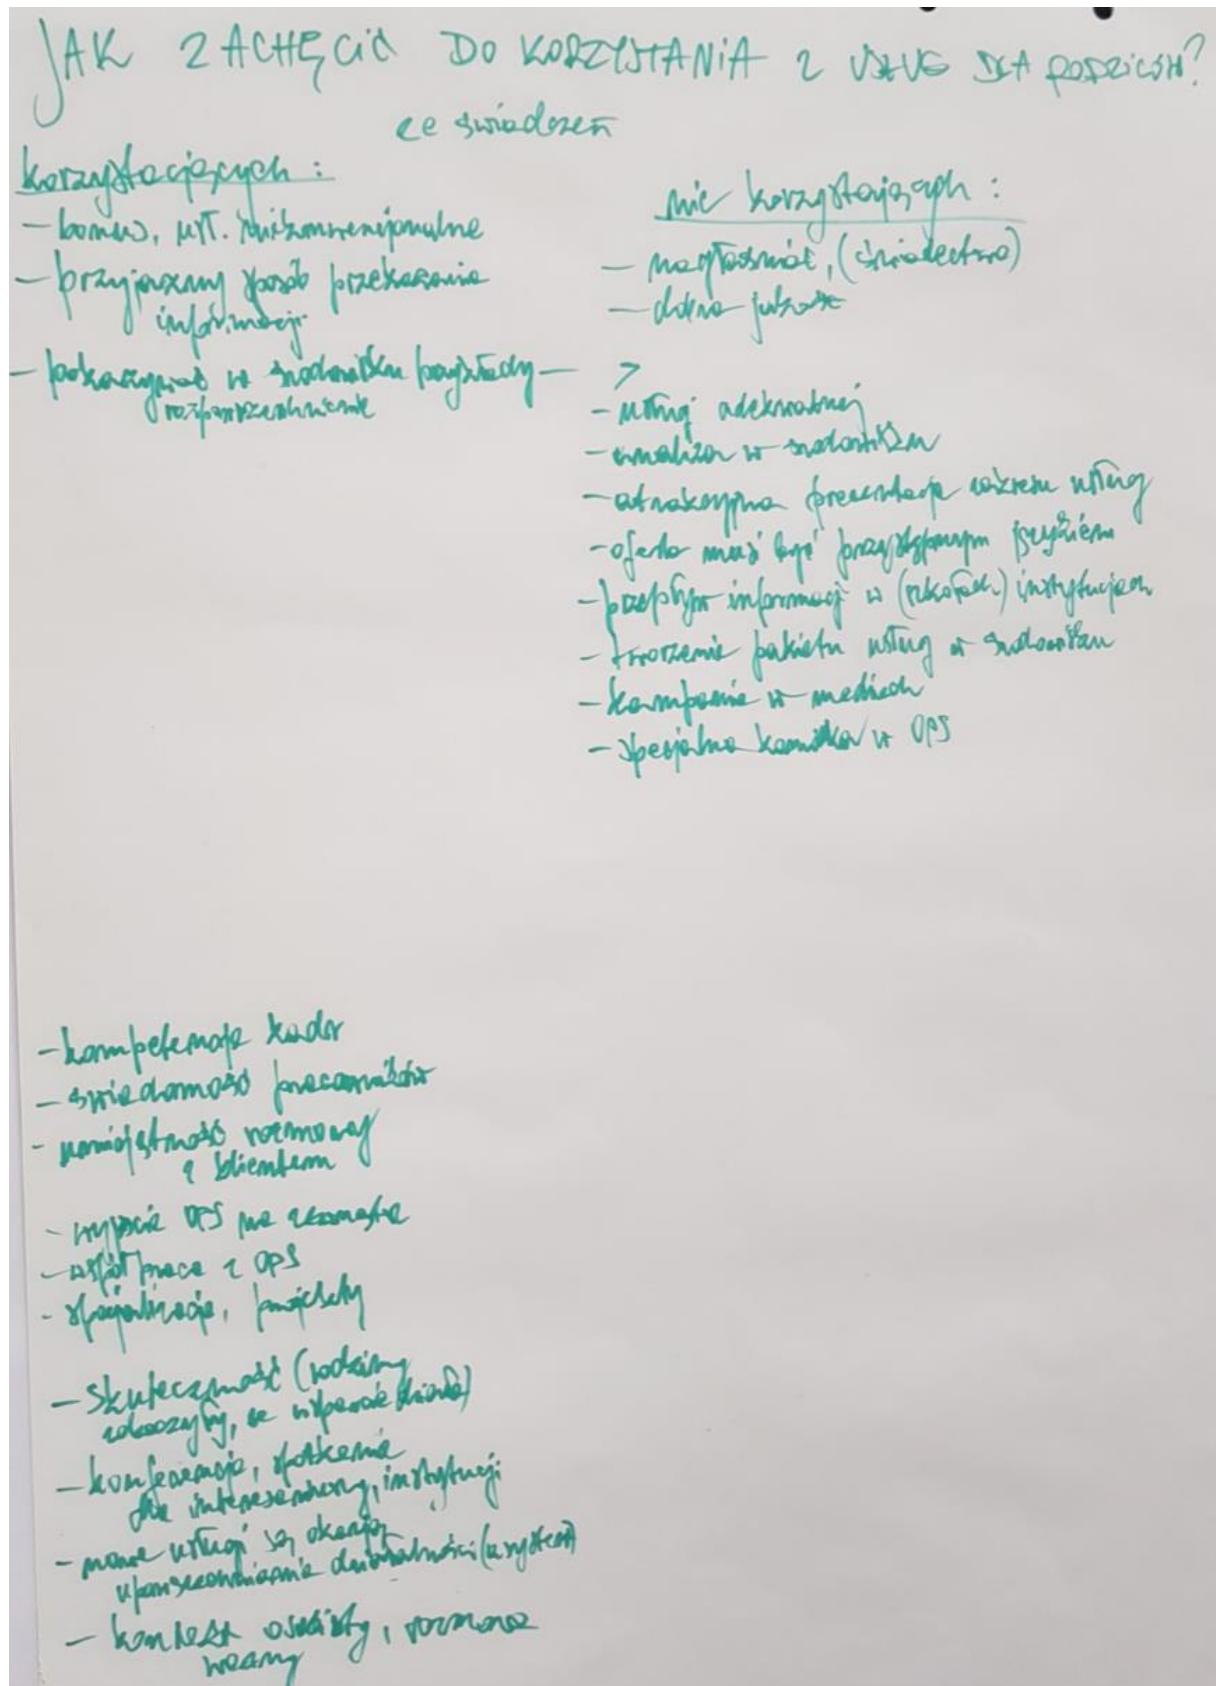 JAK ZACHĘCIĆ DO KORZYSTANIA Z USŁUG DLA RODZICÓW?
ze świadczeń
korzystających :
- bonus, usł.
- przyjazny sposób przekazania
informacji
- pokazywać w środowisku przykłady -
rozpowszechnienie
nie korzystających :
- nagłośnić, (świadectwo)
- dobra jakość
>
- usługi adekwatnej
- analiza w środowisku
- atrakcyjna prezentacja zakresu usług
- oferta musi być przystępnym językiem
- przepływ informacji w (szkołach) instytucjach
- tworzenie pakietu usług w środowisku
- kampanie w mediach
- specjalna komórka w OPS
- kompetencje kadr
- świadomość pracowników
- umiejętność rozmowy
z klientem
- wyjście OPS na zewnątrz
- współpraca z OPS
- specjalizacje, projekty
- skuteczność (rodziny
zobaczyły, że wsparcie działa)
- konferencje, spotkania
dla interesariuszy, instytucji
- nowe usługi są okazją
upowszechniania działalności (asystent)
- kontakt osobisty, rozmowa